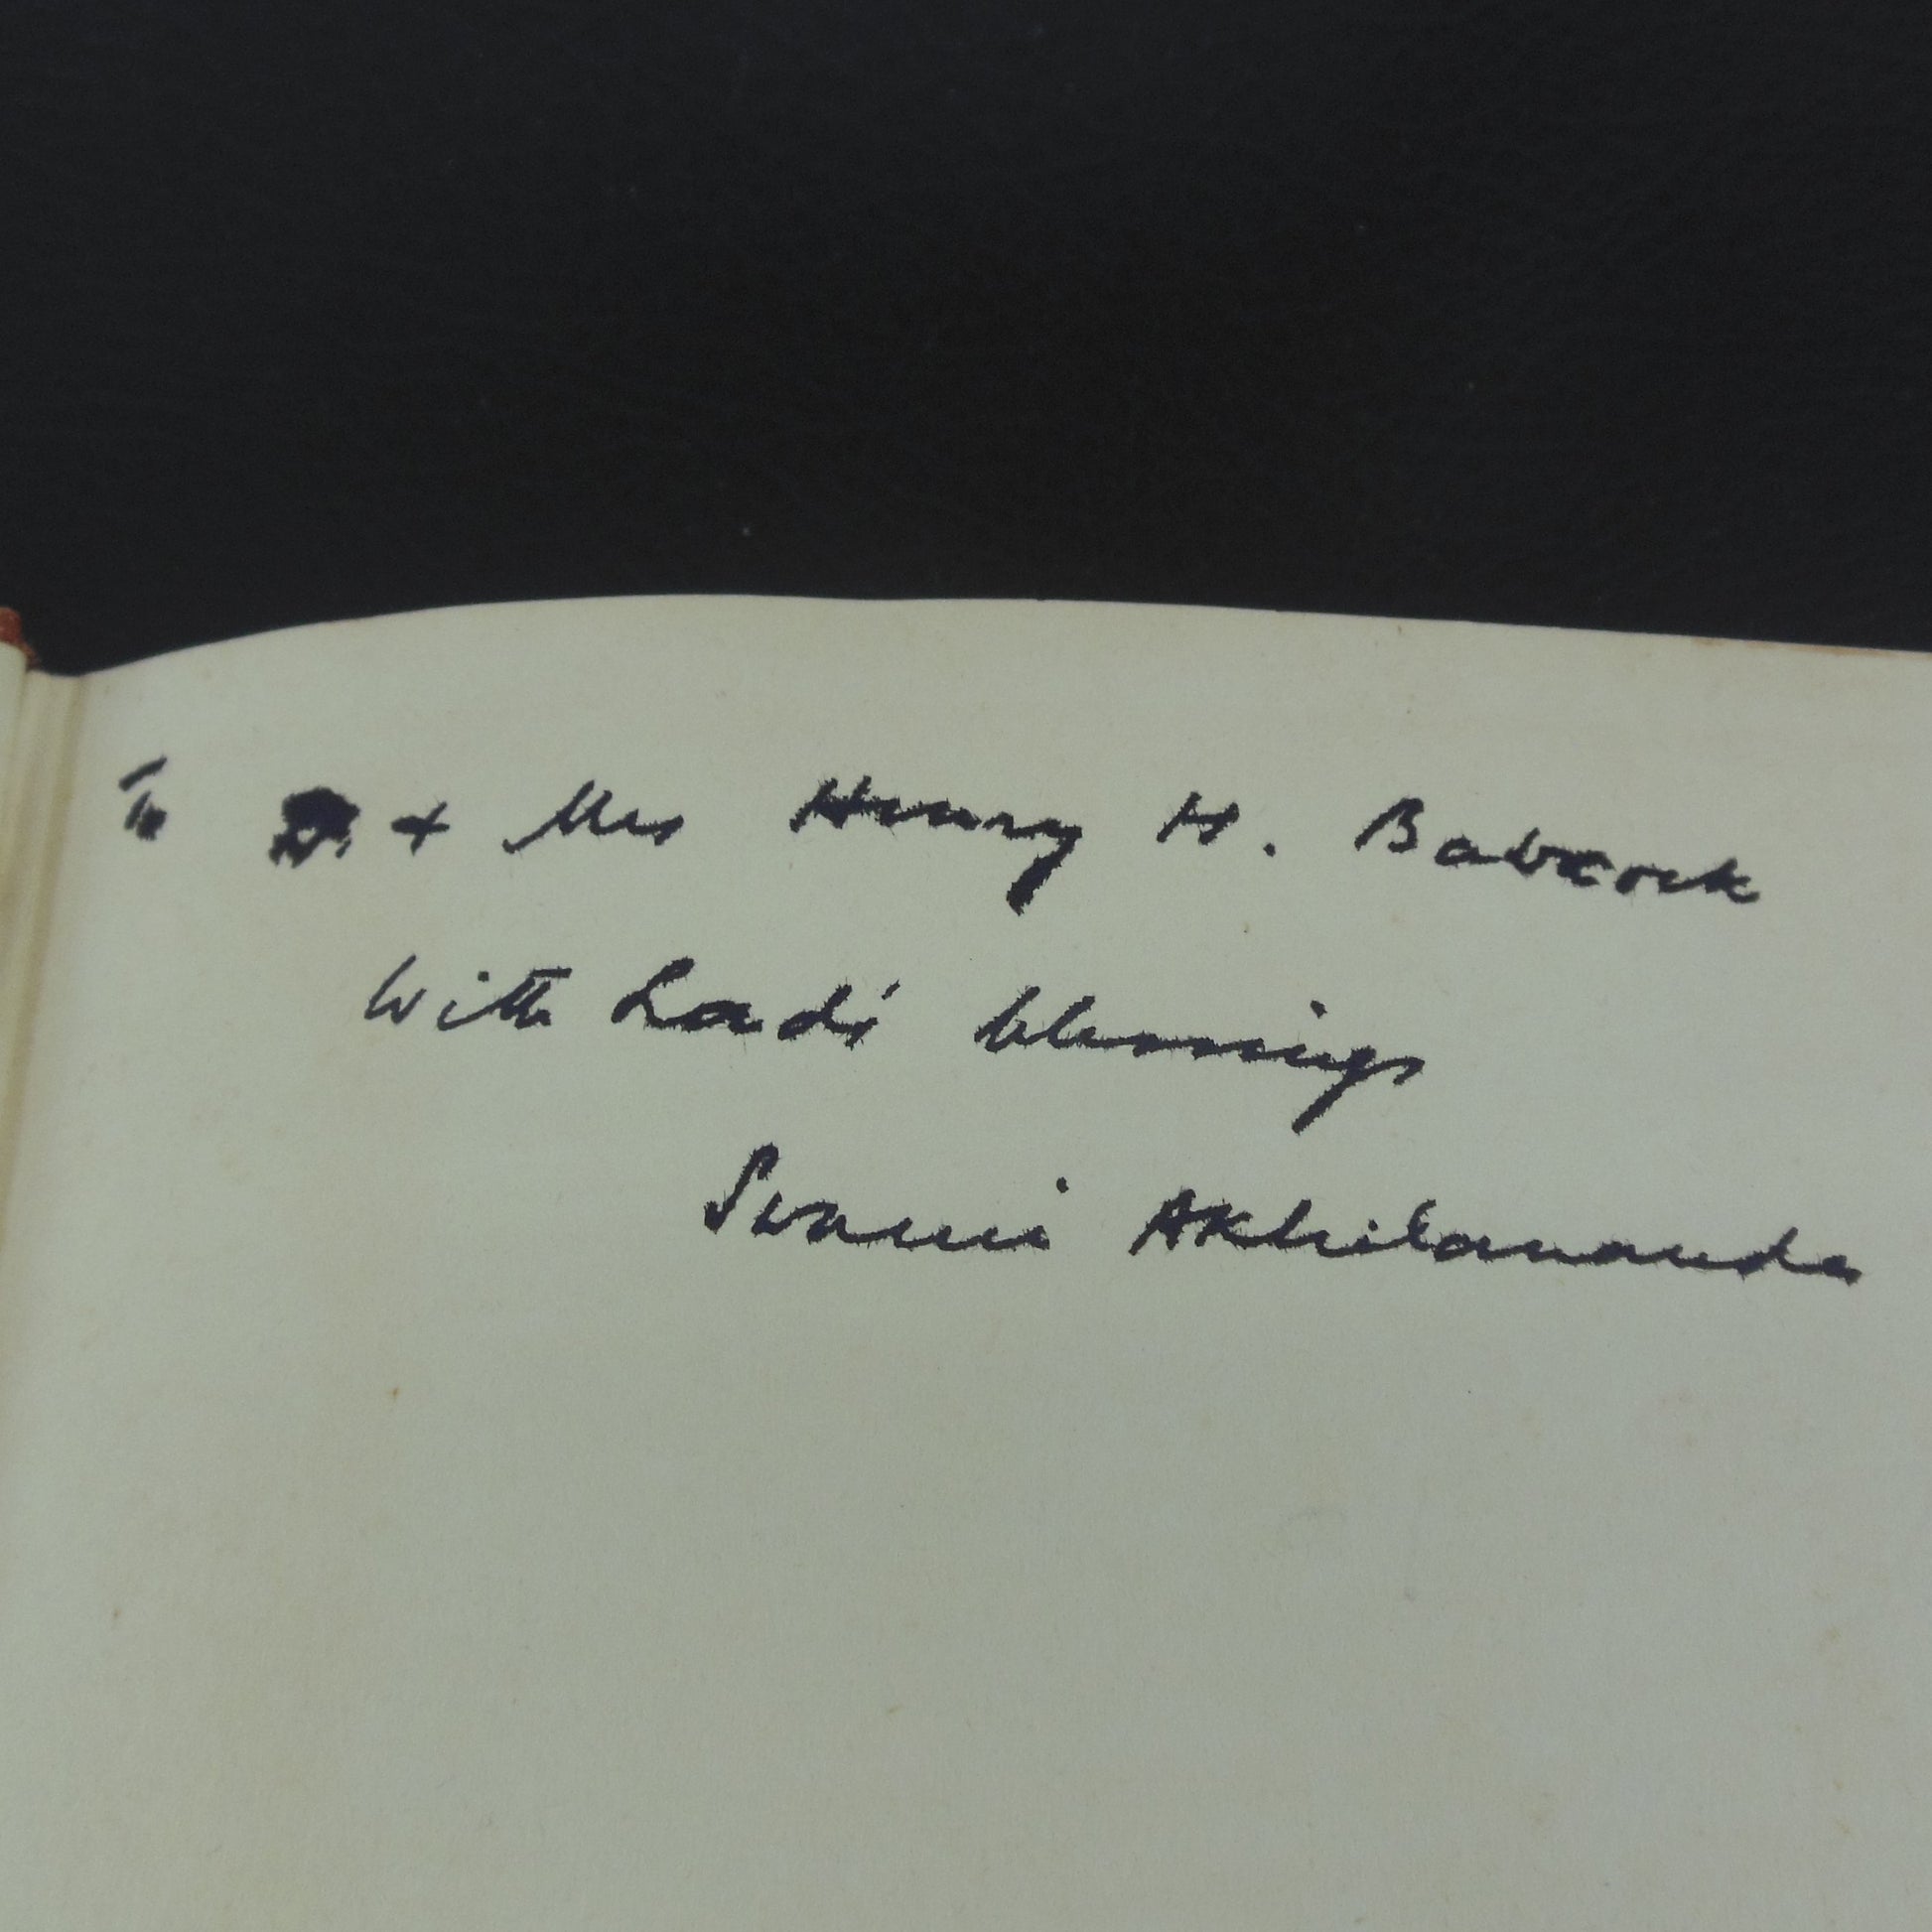 To Dr. + Mrs Henry H. Babcock
With blessings
Swami Akhilananda